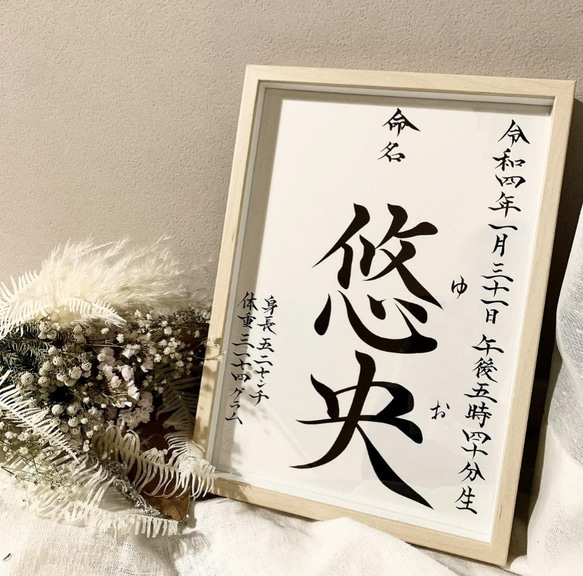 令和四年一月三十一日 午後五時四十分生
命名
悠央
ゆ お
身長 五二センチ
体重 グラム